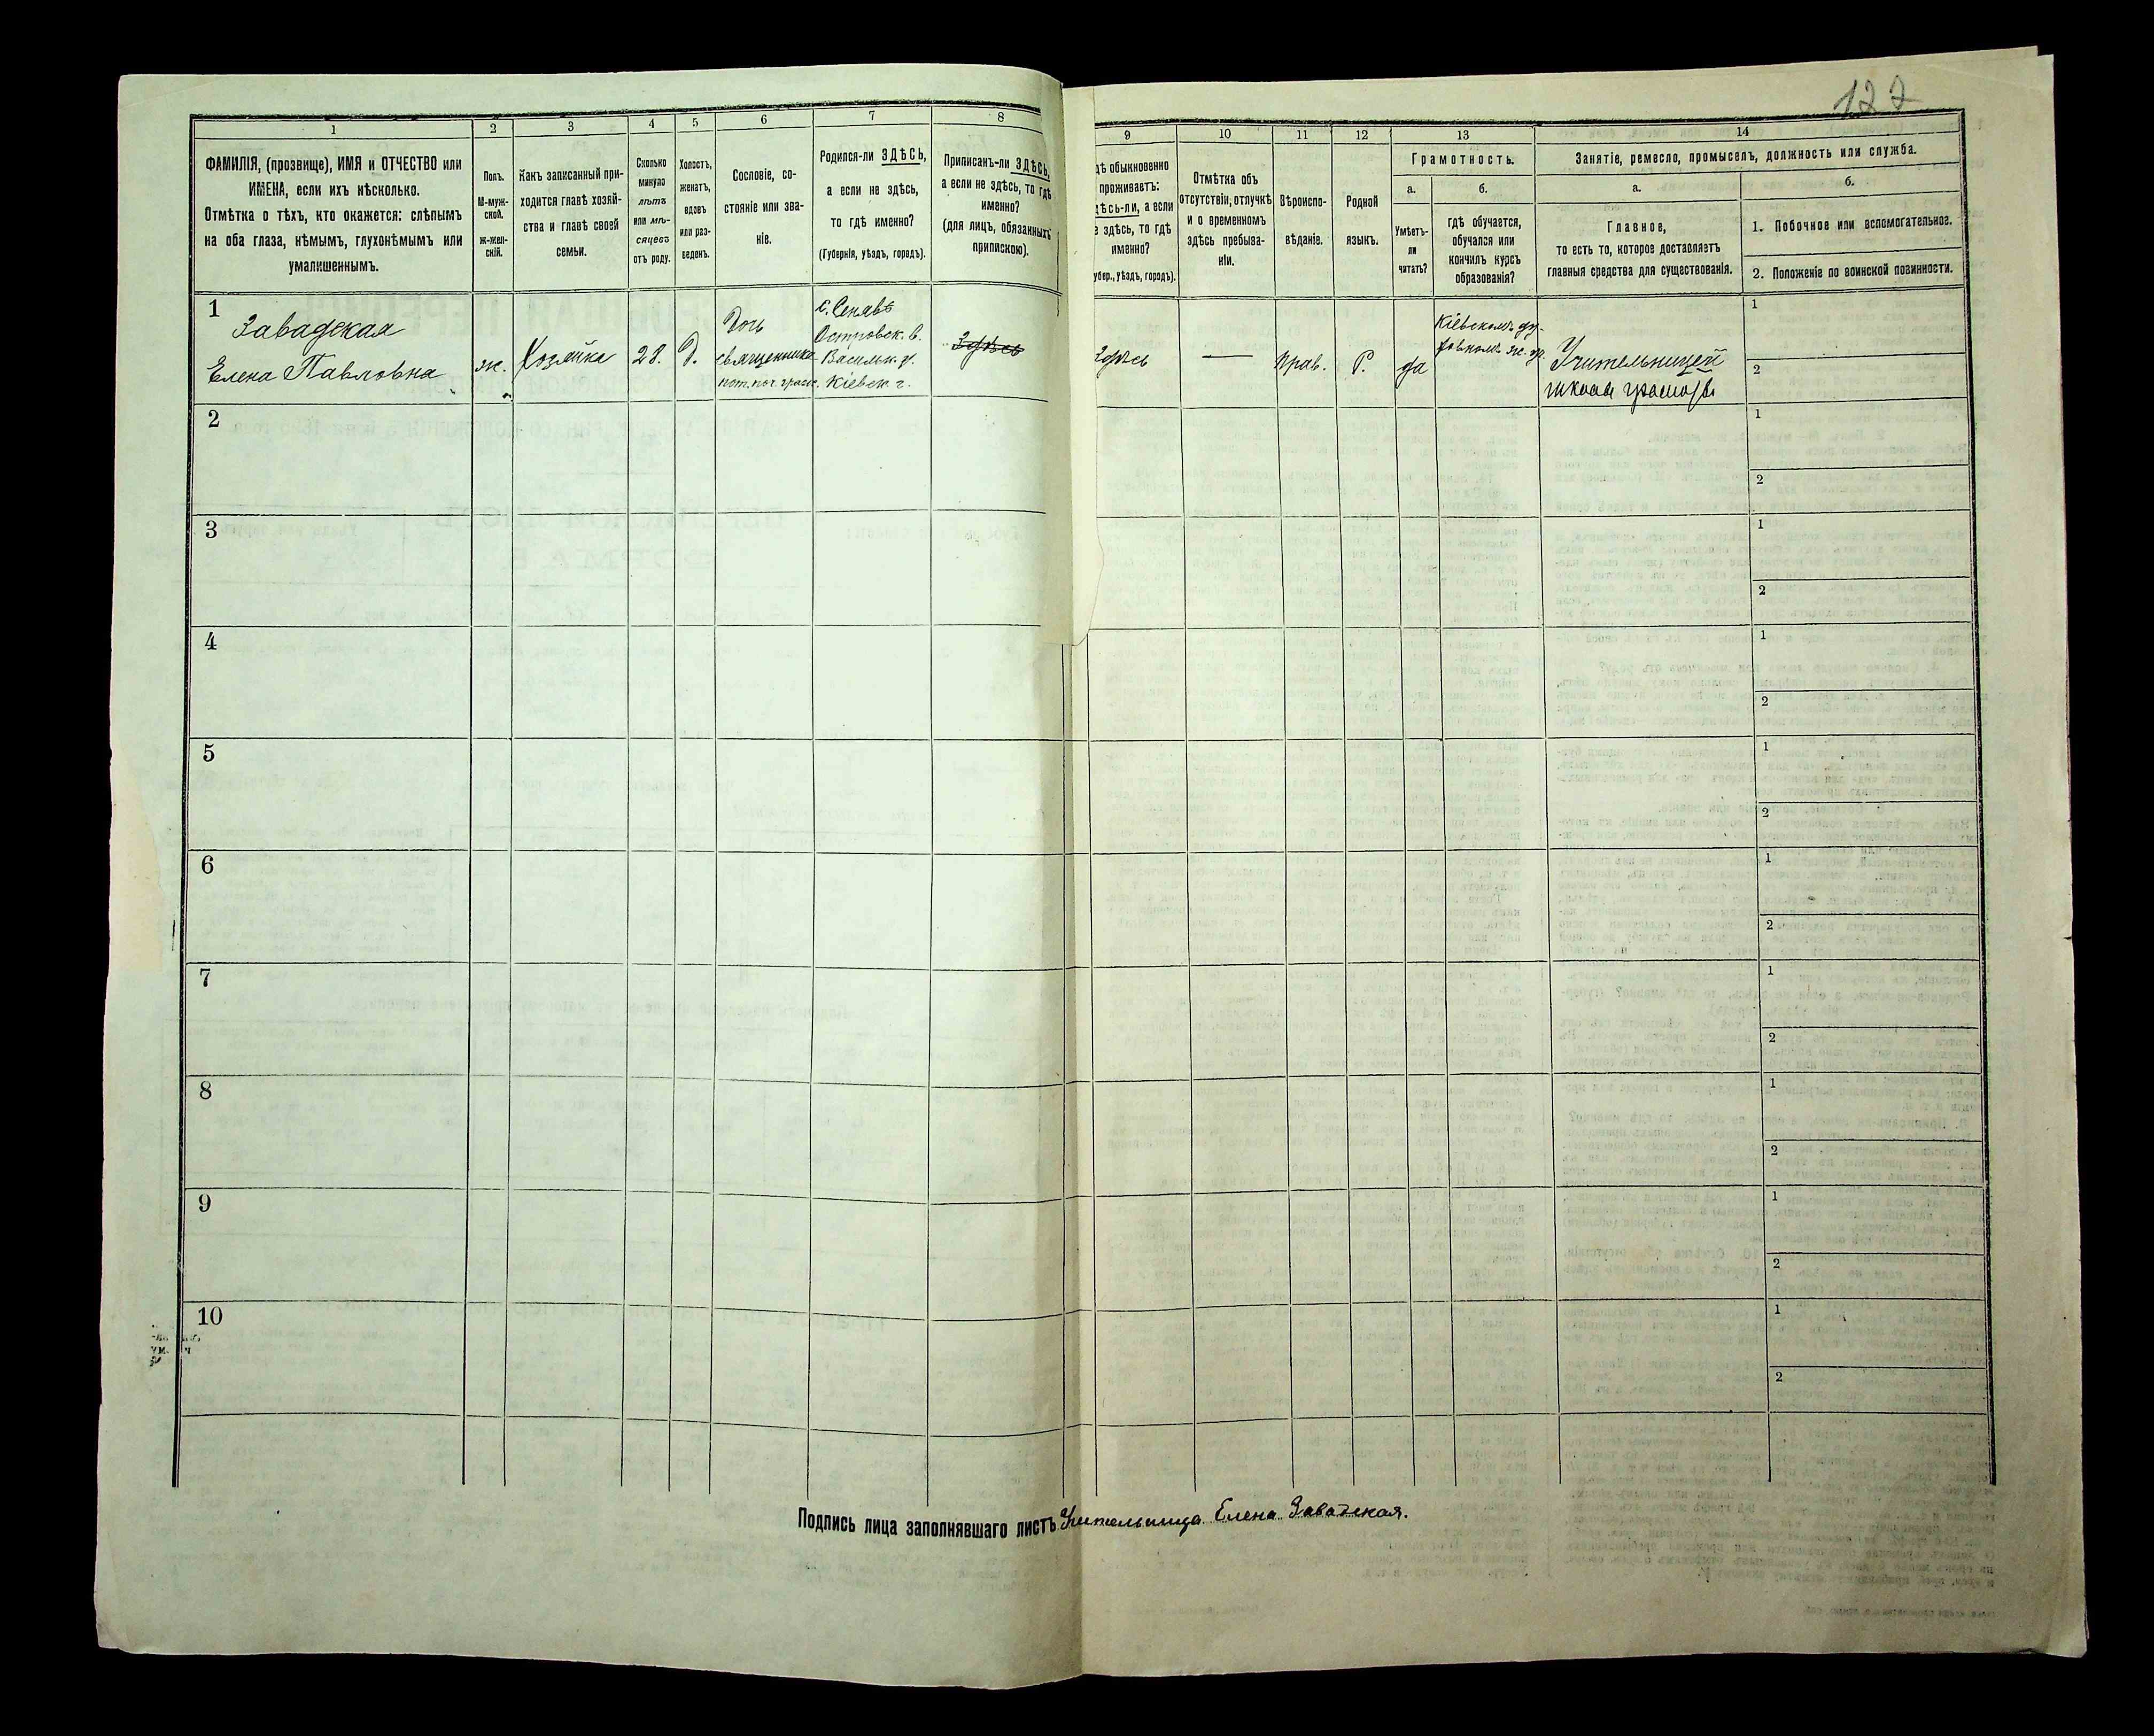 127
1 2 3 4 5 6 7 8 9 10 11 12 13 14
ФАМИЛІЯ, (прозвище), ИМЯ и ОТЧЕСТВО или
ИМЕНА, если ихъ нѣсколько.
Отмѣтка о тѣхъ, кто окажется: слѣпымъ
на оба глаза, нѣмымъ, глухонѣмымъ или
умалишеннымъ.
Полъ.
М-муж-
ской.
ж-жен-
скій.
Какъ записанный при-
ходится главѣ хозяй-
ства и главѣ своей
семьи.
Сколько
минуло
лѣтъ
или мѣ-
сяцевъ
отъ роду.
Холостъ,
женатъ,
вдовъ
или раз-
веденъ.
Сословіе, со-
стояніе или зва-
ніе.
Родился-ли ЗДѢСЬ,
а если не здѣсь,
то гдѣ именно?
(Губернія, уѣздъ, городъ).
Приписанъ-ли ЗДѢСЬ,
а если не здѣсь, то гдѣ
именно?
(для лицъ, обязанныхъ
припискою).
дѣ обыкновенно
проживаетъ:
дѣсь-ли, а если
е здѣсь, то гдѣ
именно?
губер., уѣздъ, городъ).
Отмѣтка объ
отсутствіи, отлучкѣ
и о временномъ
здѣсь пребыва-
ніи.
Вѣроиспо-
вѣданіе.
Родной
языкъ.
Грамотность.
а.
Умѣетъ-
ли
читать?
б.
гдѣ обучается,
обучался или
кончилъ курсъ
образованія?
Занятіе, ремесло, промыселъ, должность или служба.
а.
Главное,
то есть то, которое доставляетъ
главныя средства для существованія.
б.
1. Побочное или вспомогательное.
2. Положеніе по воинской повинности.
1
Завадская
Елена Павловна
ж.
Хозяйка
28.
Д.
Дочь
священника
пот. поч. граж.
с. Сенавѣ
Островск. в.
Васильк. у.
Кіевск г.
Здѣсь
Здѣсь
—
Прав.
Р.
да
Кіевскомъ ду-
ховномъ ж. уч.
Учительницей
школы грамоты
1
2
2
1
2
3
1
2
4
1
2
5
1
2
6
1
2
7
1
2
8
1
2
9
1
2
10
1
2
Подпись лица заполнявшаго листъ Учительница Елена Завадская.